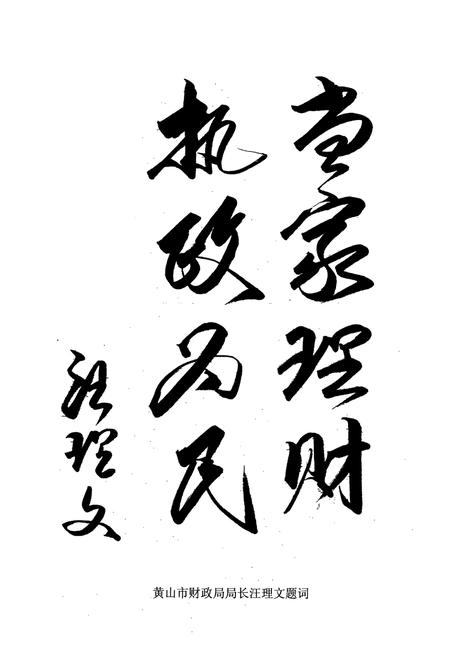 当家理财
执政为民
汪理文
黄山市财政局局长汪理文题词